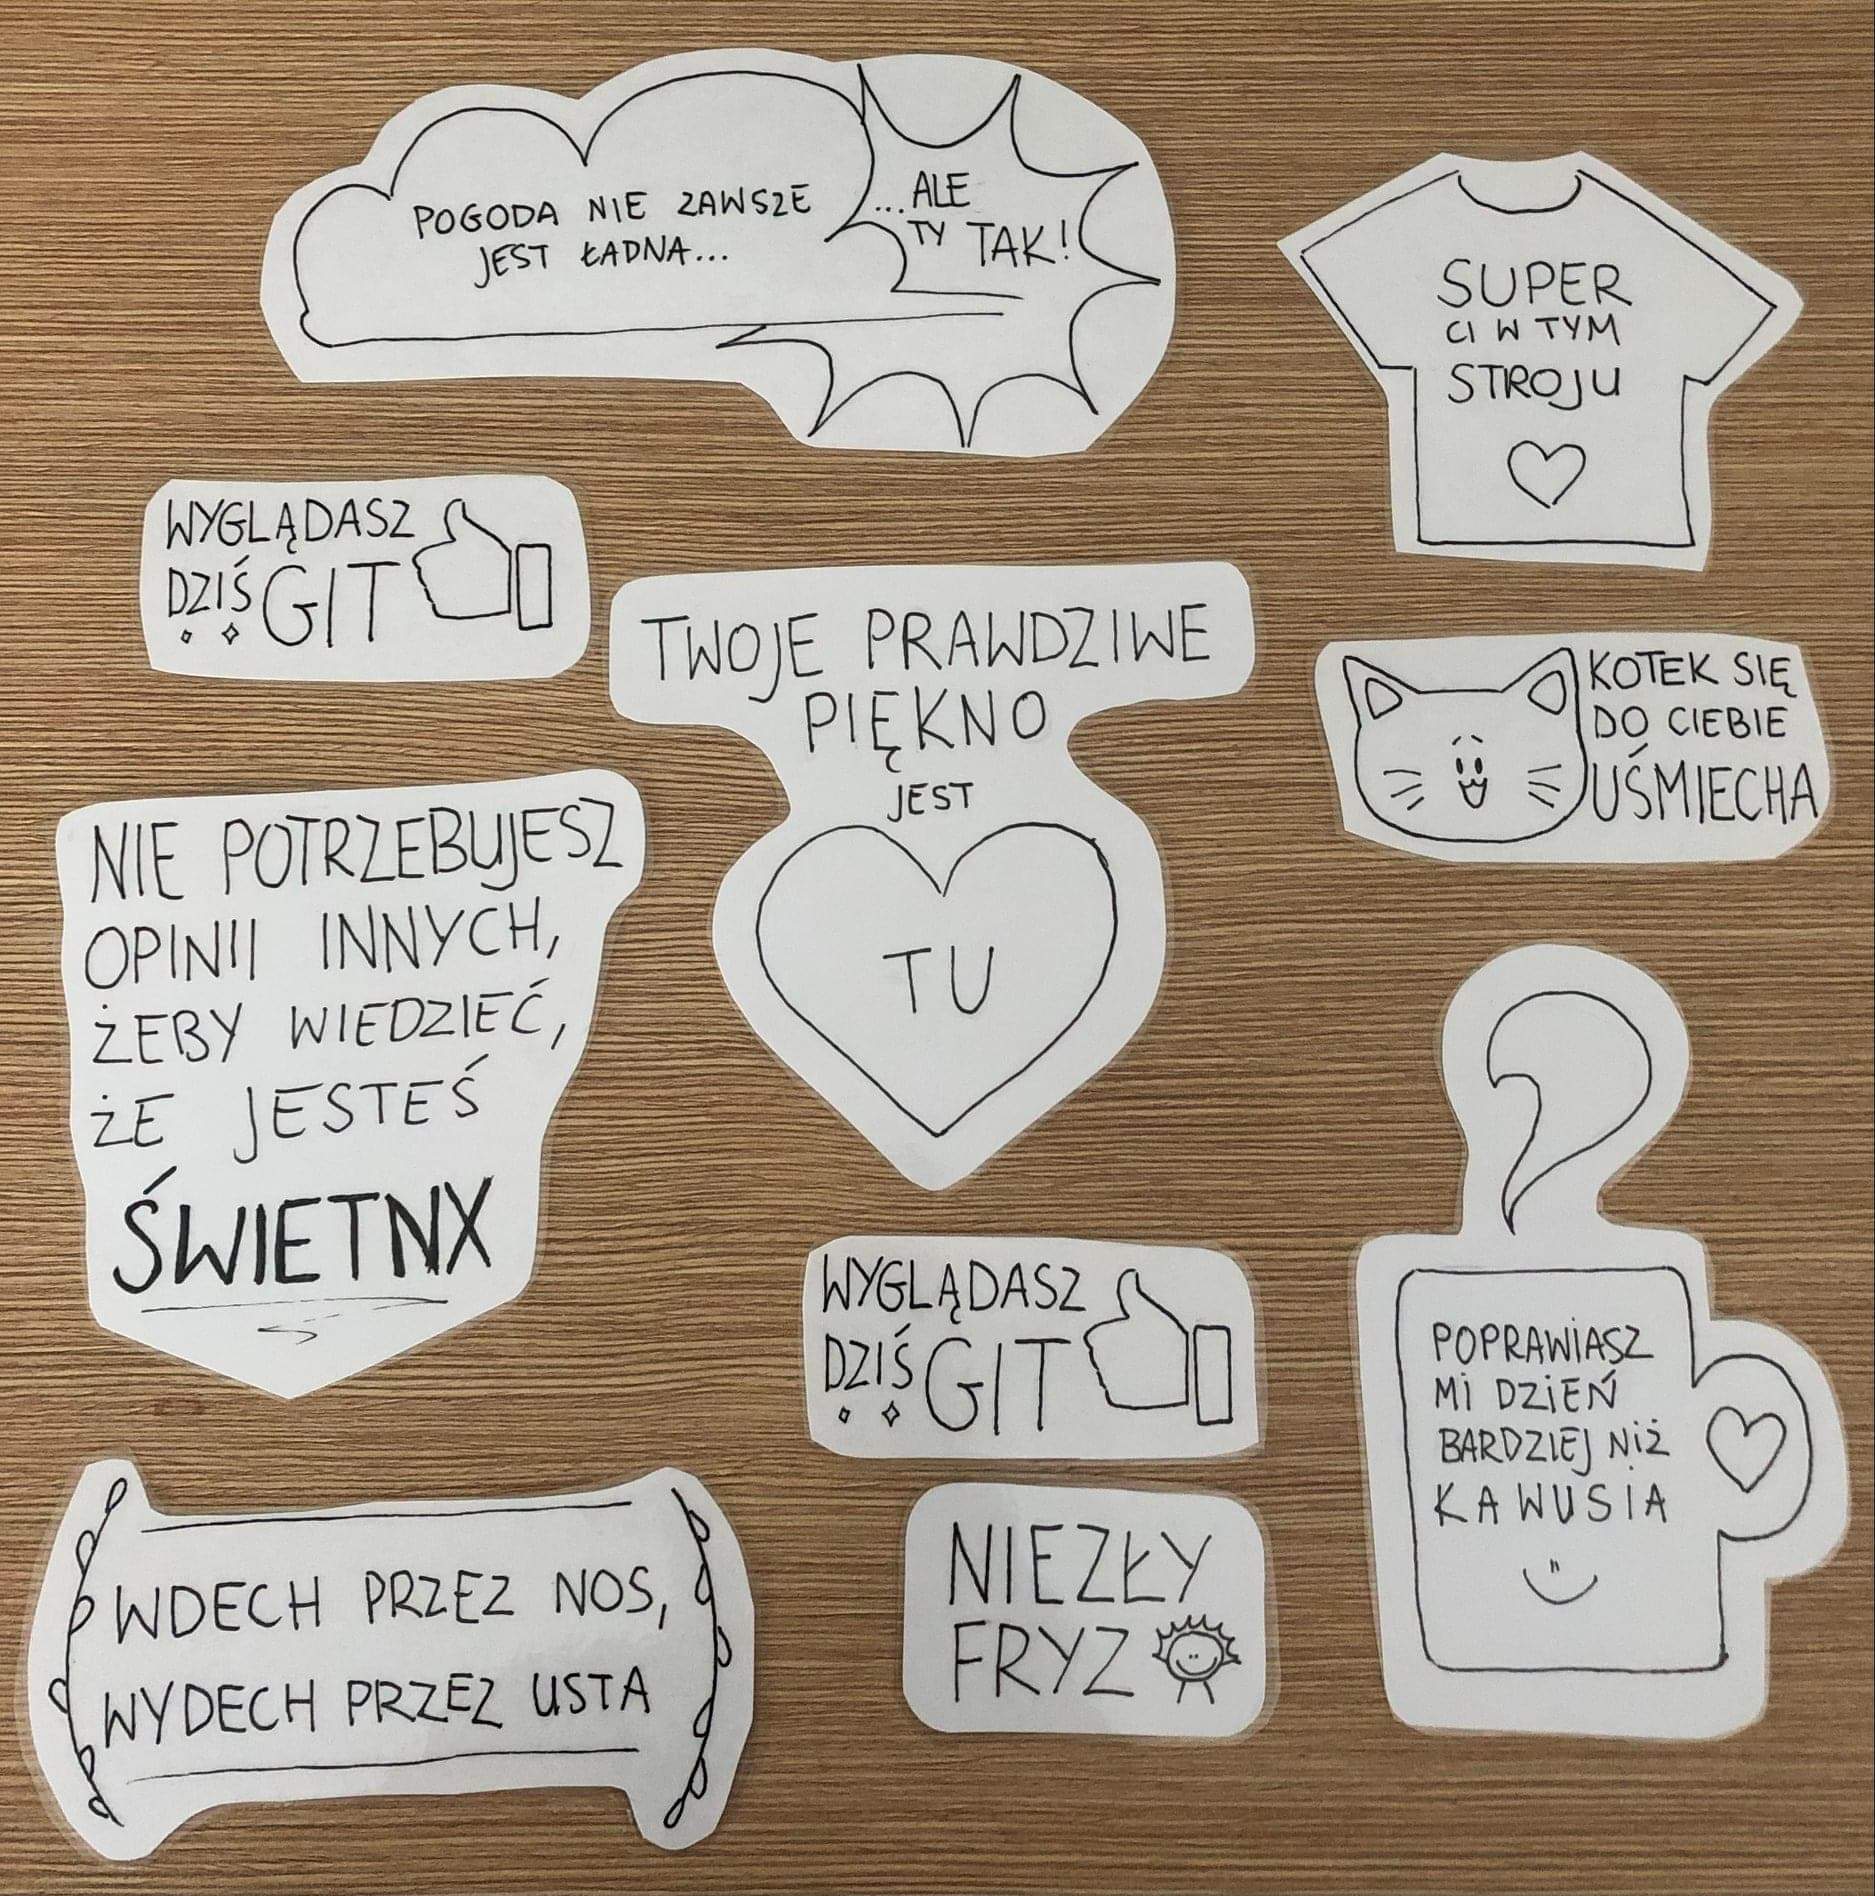 POGODA NIE ZAWSZE
JEST ŁADNA...
...ALE
TY TAK!
SUPER
CI W TYM
STROJU
WYGLĄDASZ
DZIŚ GIT
TWOJE PRAWDZIWE
PIĘKNO
JEST
TU
KOTEK SIĘ
DO CIEBIE
UŚMIECHA
NIE POTRZEBUJESZ
OPINII INNYCH,
ŻEBY WIEDZIEĆ,
ŻE JESTEŚ
ŚWIETNX
WYGLĄDASZ
DZIŚ GIT
POPRAWIASZ
MI DZIEŃ
BARDZIEJ NIŻ
KAWUSIA
WDECH PRZEZ NOS,
WYDECH PRZEZ USTA
NIEZŁY
FRYZ